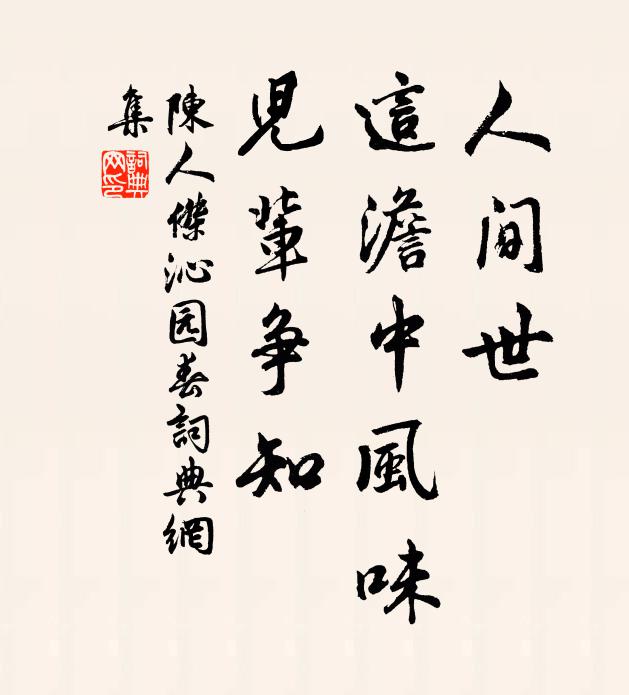 人間世
這澹中風味
兒輩爭知
陳人傑沁园春詞典網
集
詞典
网印